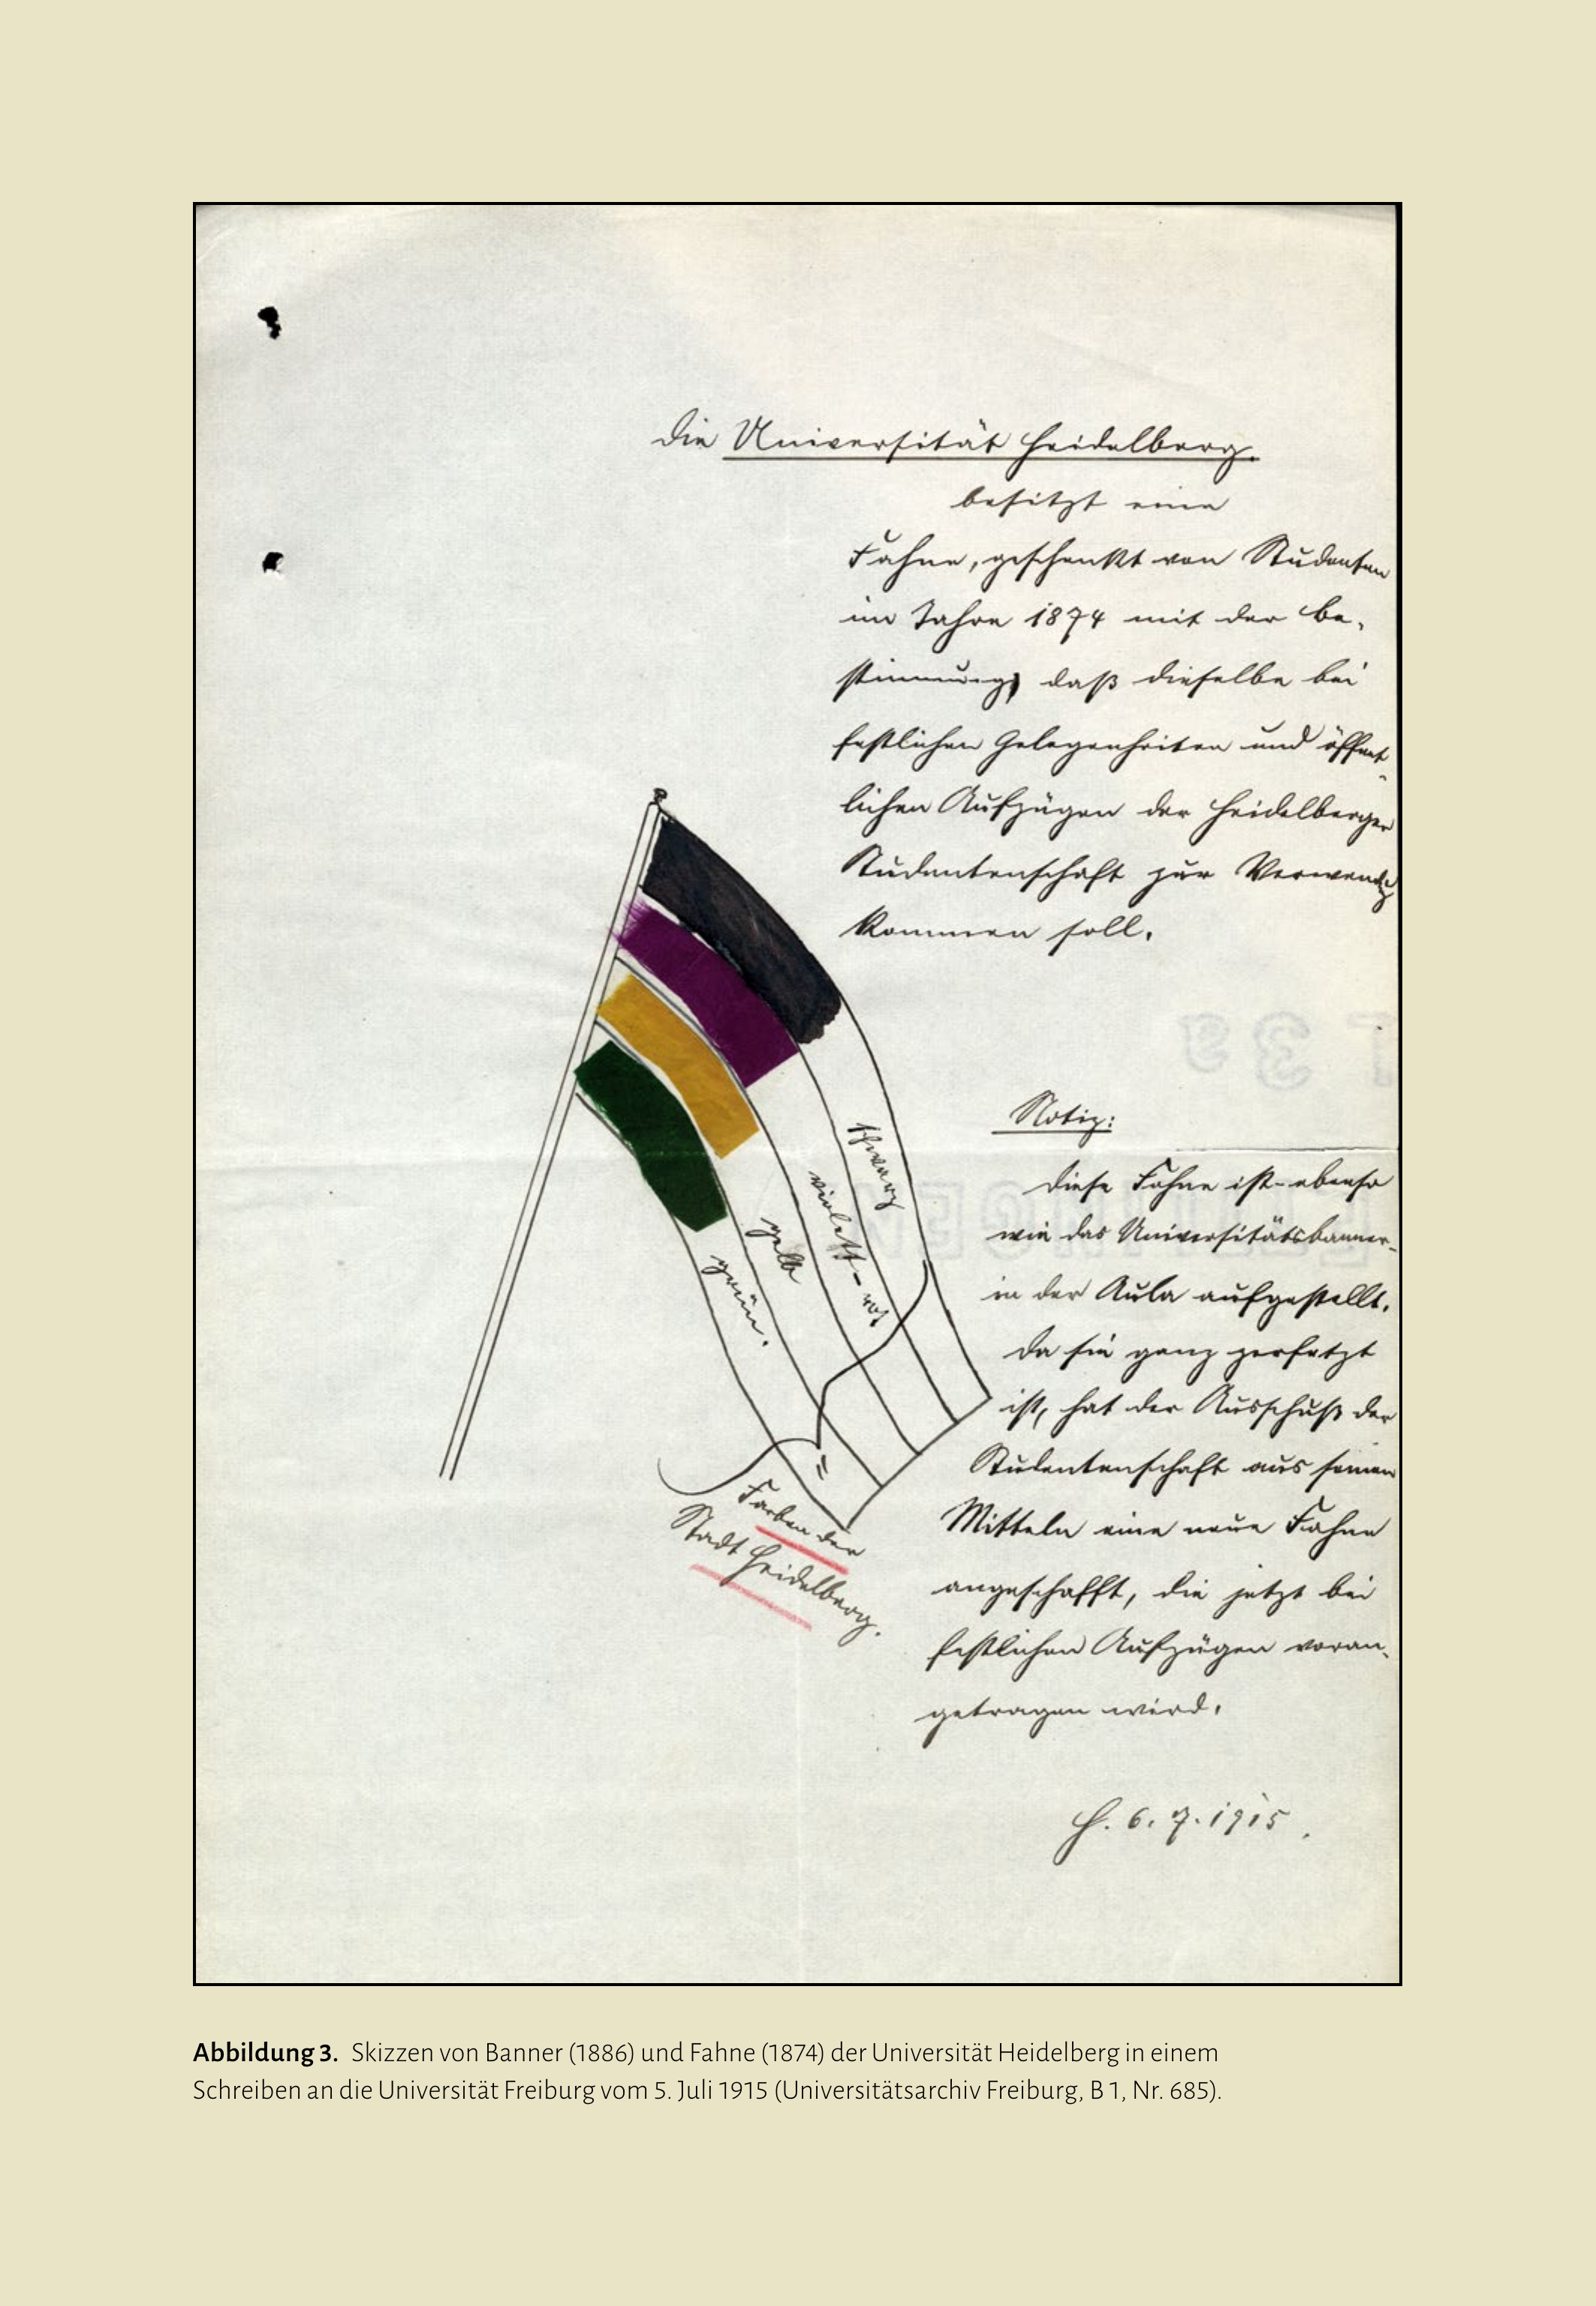 Die Universität Heidelberg.
besitzt eine
Fahne, geschenkt von Studenten
im Jahre 1874 mit der Be-
stimmung, daß dieselbe bei
festlichen Gelegenheiten und öffent-
lichen Aufzügen der Heidelberger
Studentenschaft zur Verwendg
kommen soll.
schwarz
violett-rot
gelb
grün.
Farben der
Stadt Heidelberg.
Notiz:
Diese Fahne ist - ebenso
wie das Universitätsbanner -
in der Aula aufgestellt.
Da sie ganz zerfetzt
ist, hat der Ausschuß der
Studentenschaft aus seinen
Mitteln eine neue Fahne
angeschafft, die jetzt bei
festlichen Aufzügen voran-
getragen wird.
H. 6. 7. 1915.
Abbildung 3. Skizzen von Banner (1886) und Fahne (1874) der Universität Heidelberg in einem
Schreiben an die Universität Freiburg vom 5. Juli 1915 (Universitätsarchiv Freiburg, B 1, Nr. 685).